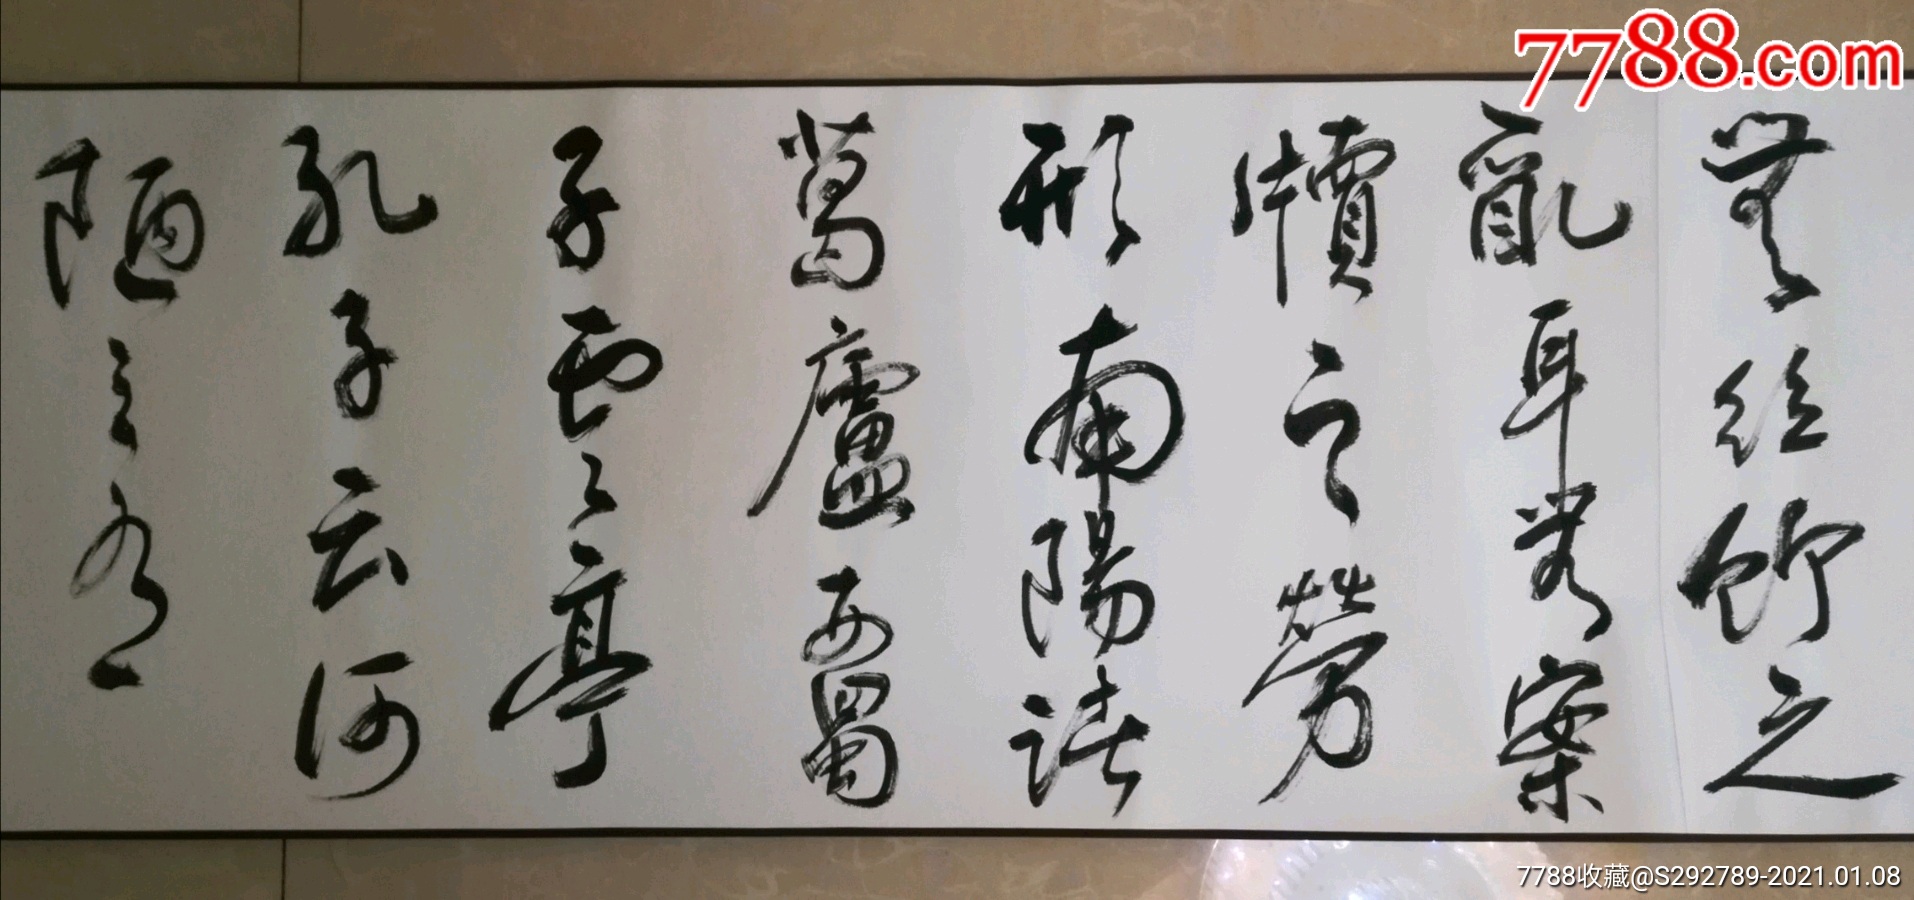 7788.com
無丝竹之
亂耳無案
牘之勞
形南陽諸
葛廬西蜀
子雲之亭
孔子云何
陋之有
7788收藏@S292789-2021.01.08